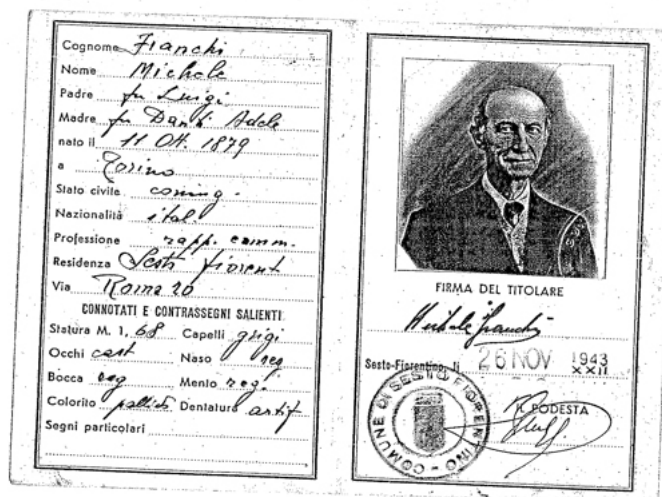 Cognome Franchi
Nome Michele
Padre fu Luigi
Madre fu Adele
nato il 11 Ott. 1879
a Torino
Stato civile coniug.
Nazionalità ital.
Professione rapp. comm.
Residenza Sesto Fiorent
Via Roma 20
CONNOTATI E CONTRASSEGNI SALIENTI
Statura M. 1,68 Capelli grigi
Occhi cast Naso reg
Bocca reg Mento reg.
Colorito pallido Dentatura artif
Segni particolari
FIRMA DEL TITOLARE
Michele Franchi
Sesto-Fiorentino, li 26 NOV 1943
XXII
IL PODESTA
COMUNE DI SESTO FIORENTINO